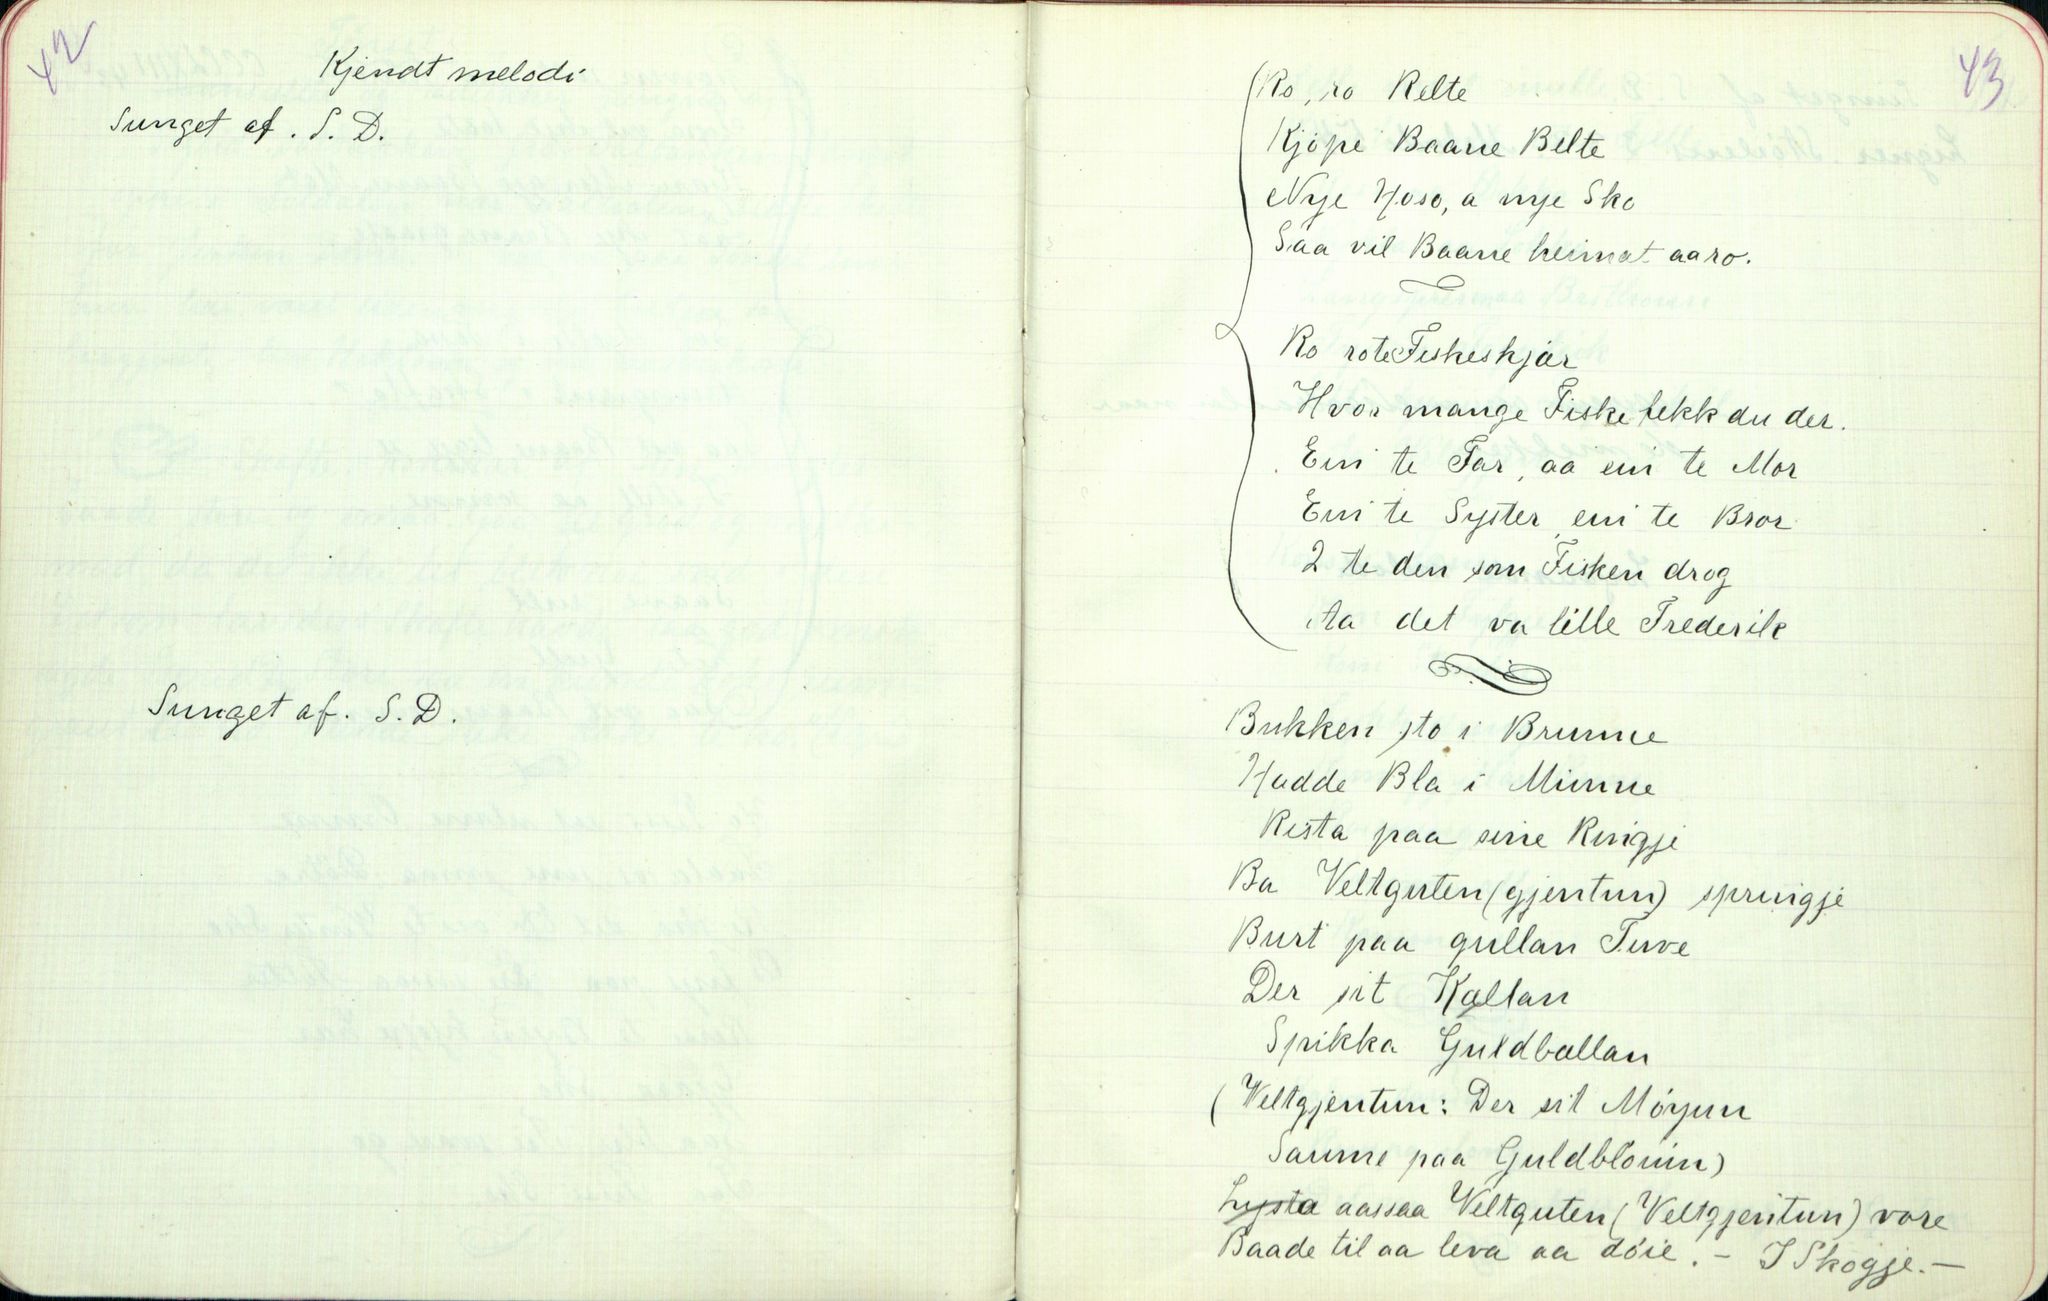 42
Kjendt melodi
Sunget af. S. D.
Sunget af. S. D.
43
Ro, ro Relte
Kjöpe Baane Belte
Nye Hoso, a nye Sko
Saa vil Baane heimat aa ro.
Ro ro te Fiskeskjär
Hvor mange Fiske fekk du der.
Ein te Far, aa ein te Mor
Ein te Syster, ein te Bror
2 te den som Fisken drog
Aa det va lille Frederik
Bukken sto i Brunne
Hadde Bla i Munne
Rista paa sine Ringje
Ba Veltguten (gjentun) springje
Burt paa gullan Tuve
Der sit Kallan
Spikka Guldballan
(Veltgjentun: Der sit Möyun
Saume paa Guldblöuin)
Lysta aassaa Veltguten (Veltgjentun) vore
Baade til aa leva aa döie. - I Skogje. -